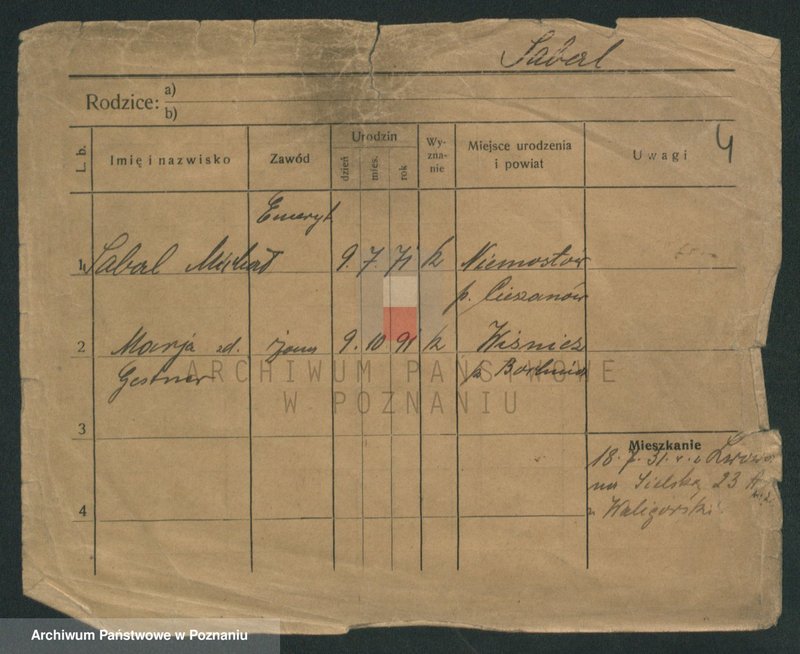 Sabal
Rodzice: a)
b)
L. b. Imię i nazwisko Zawód Urodzin dzień mies. rok Wy-zna-nie Miejsce urodzenia i powiat Uwagi 4
Emeryt
1 Sabal Michał 9. 7 71 k Niemostów
p. Cieszanów
2 Marja zd. żona 9. 10 91 k Wiśnicz
Gestner p. Bochnia
ARCHIWUM PAŃSTWOWE
W POZNANIU
3
Mieszkanie
18. 7. 31. v. Lwowa
na Sielską 23 A
u Waligórski
4
Archiwum Państwowe w Poznaniu